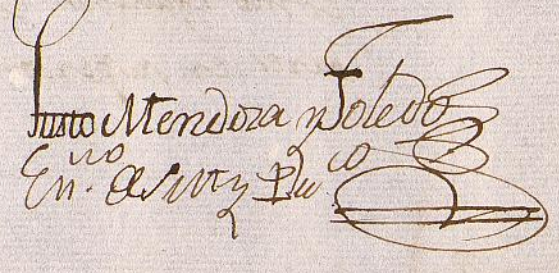 Justo Mendoza y Toledo
Ess.no de S.M. y Pu.co